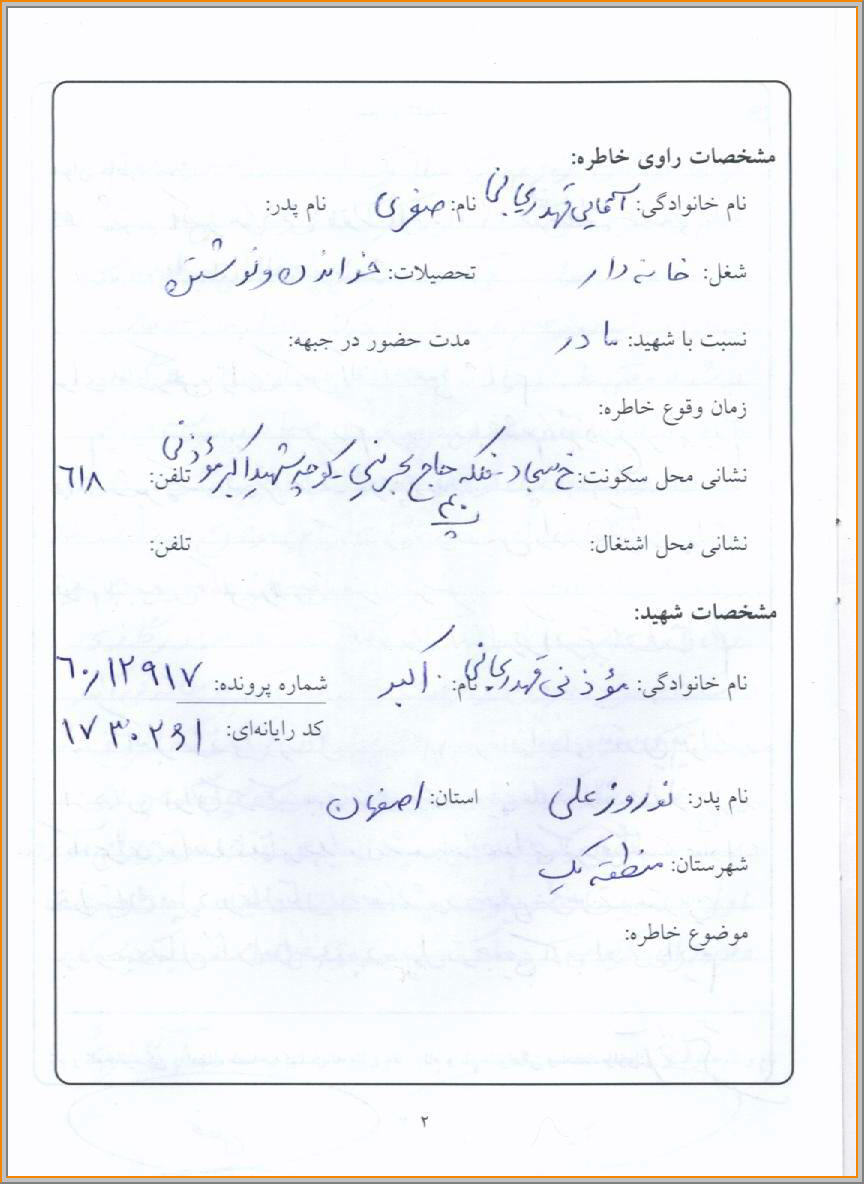 مشخصات راوی خاطره:
نام خانوادگی: آقایی قهدریجانی نام: صغری نام پدر:
شغل: خانه دار تحصیلات: خواندن و نوشتن
نسبت با شهید: مادر مدت حضور در جبهه:
زمان وقوع خاطره:
نشانی محل سکونت: خ سجاد - فلکه حاج - کوچه شهید اکبر مؤذنی تلفن: ٦١٨
پ ٤٠
نشانی محل اشتغال: تلفن:
مشخصات شهید:
نام خانوادگی: مؤذنی قهدریجانی نام: اکبر شماره پرونده: ٦٠/١٢٩١٧
کد رایانه‌ای:
نام پدر: نوروزعلی استان: اصفهان
شهرستان: منطقه یک
موضوع خاطره:
٢